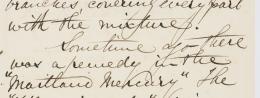 branches, covering every part
with the mixture.
Sometime ago there
was a remedy in the
"Maitland Mercury" The